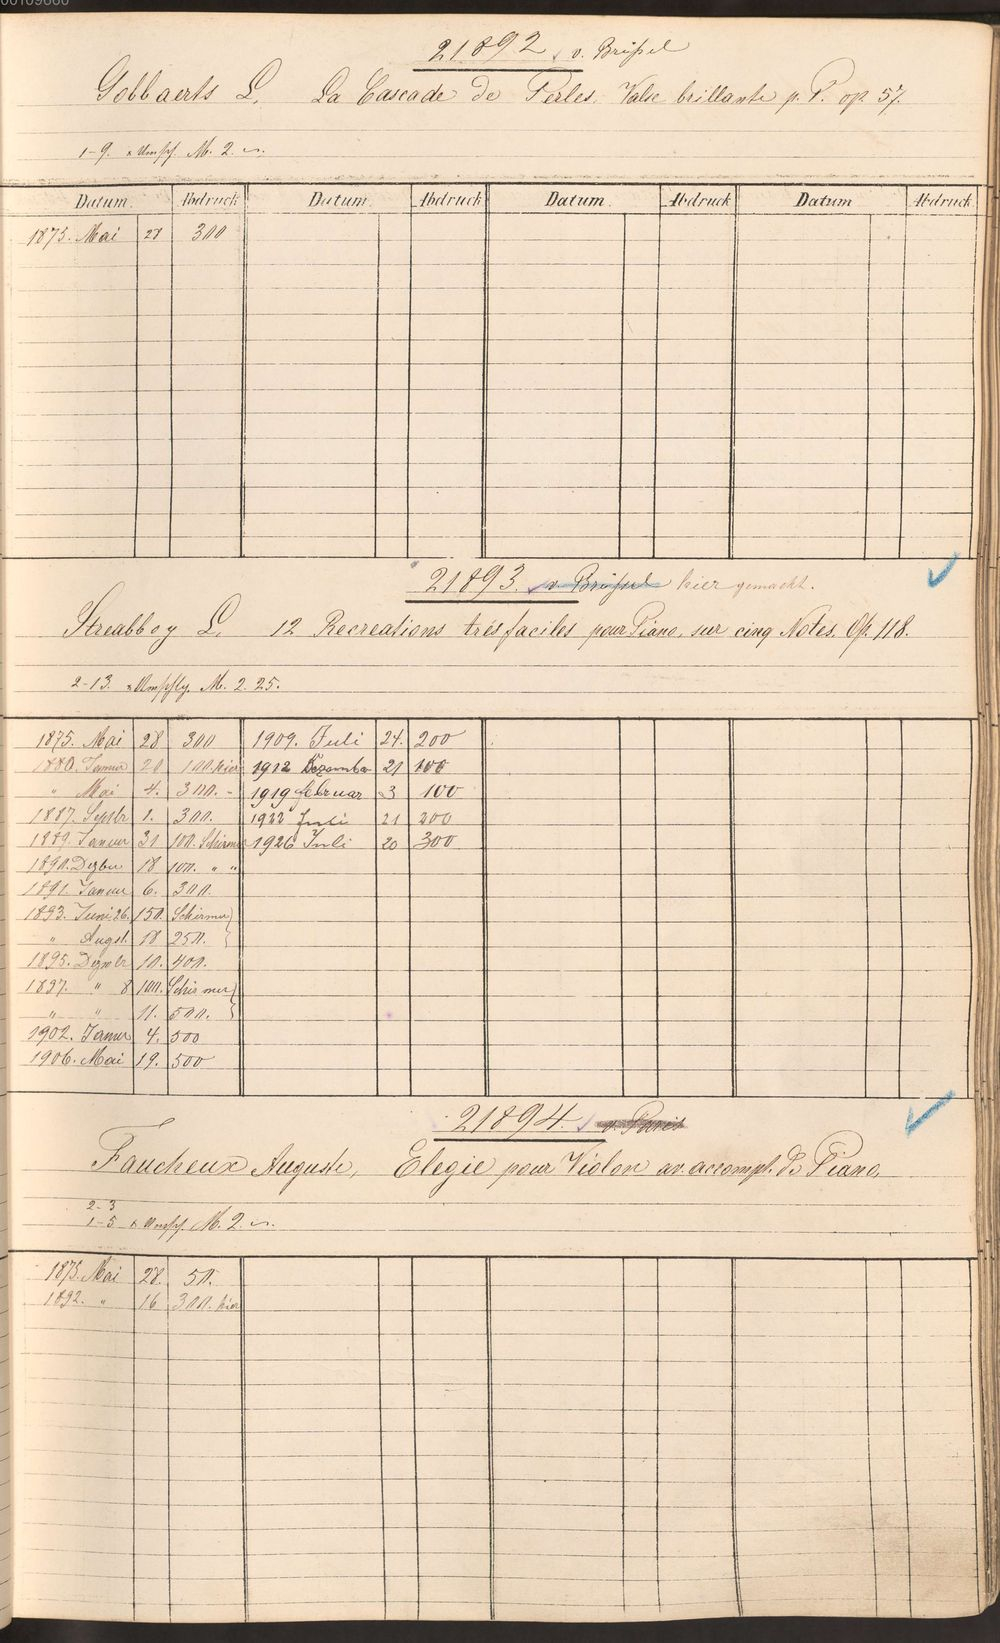 00109660
21892 v. Brüssel
Gobbaerts L. La Cascade de Perles. Valse brillante p. P. op. 57.
1-9. M. 2.
Datum. Abdruck Datum. Abdruck Datum. Abdruck Datum Abdruck
1875. Mai 28 300
21893. v. Brüssel hier gemacht.
Streabbog L. 12 Recreations trés faciles pour Piano, sur cinq Notes. Op. 118.
2-13. M. 2. 25.
1875. Mai 28 300 1909. Juli 24. 200
1880. Januar 20 100. hier 1912 Dezember 21 100
" Mai 4. 300. - 1919 februar 3 100
1887. Septbr 1. 300. 1922 Juli 21 200
1889. Januar 31 100. Schirmer 1926 Juli 20 300
1890. Dezbr 18 100. " "
1891. Januar 6. 300.
1893. Juni 26. 150. Schirmer
" Augst. 18 250.
1895. Dezmbr 10. 400.
1897. " 8 100. Schirmer
" " 11. 500.
1902. Januar 4. 500
1906. Mai 19. 500
21894. v. Paris
Faucheux Auguste, Elegie pour Violon av. accompt. de Piano.
2-3
1-5 M. 2.
1875. Mai 28. 50.
1892. " 16 300. hier